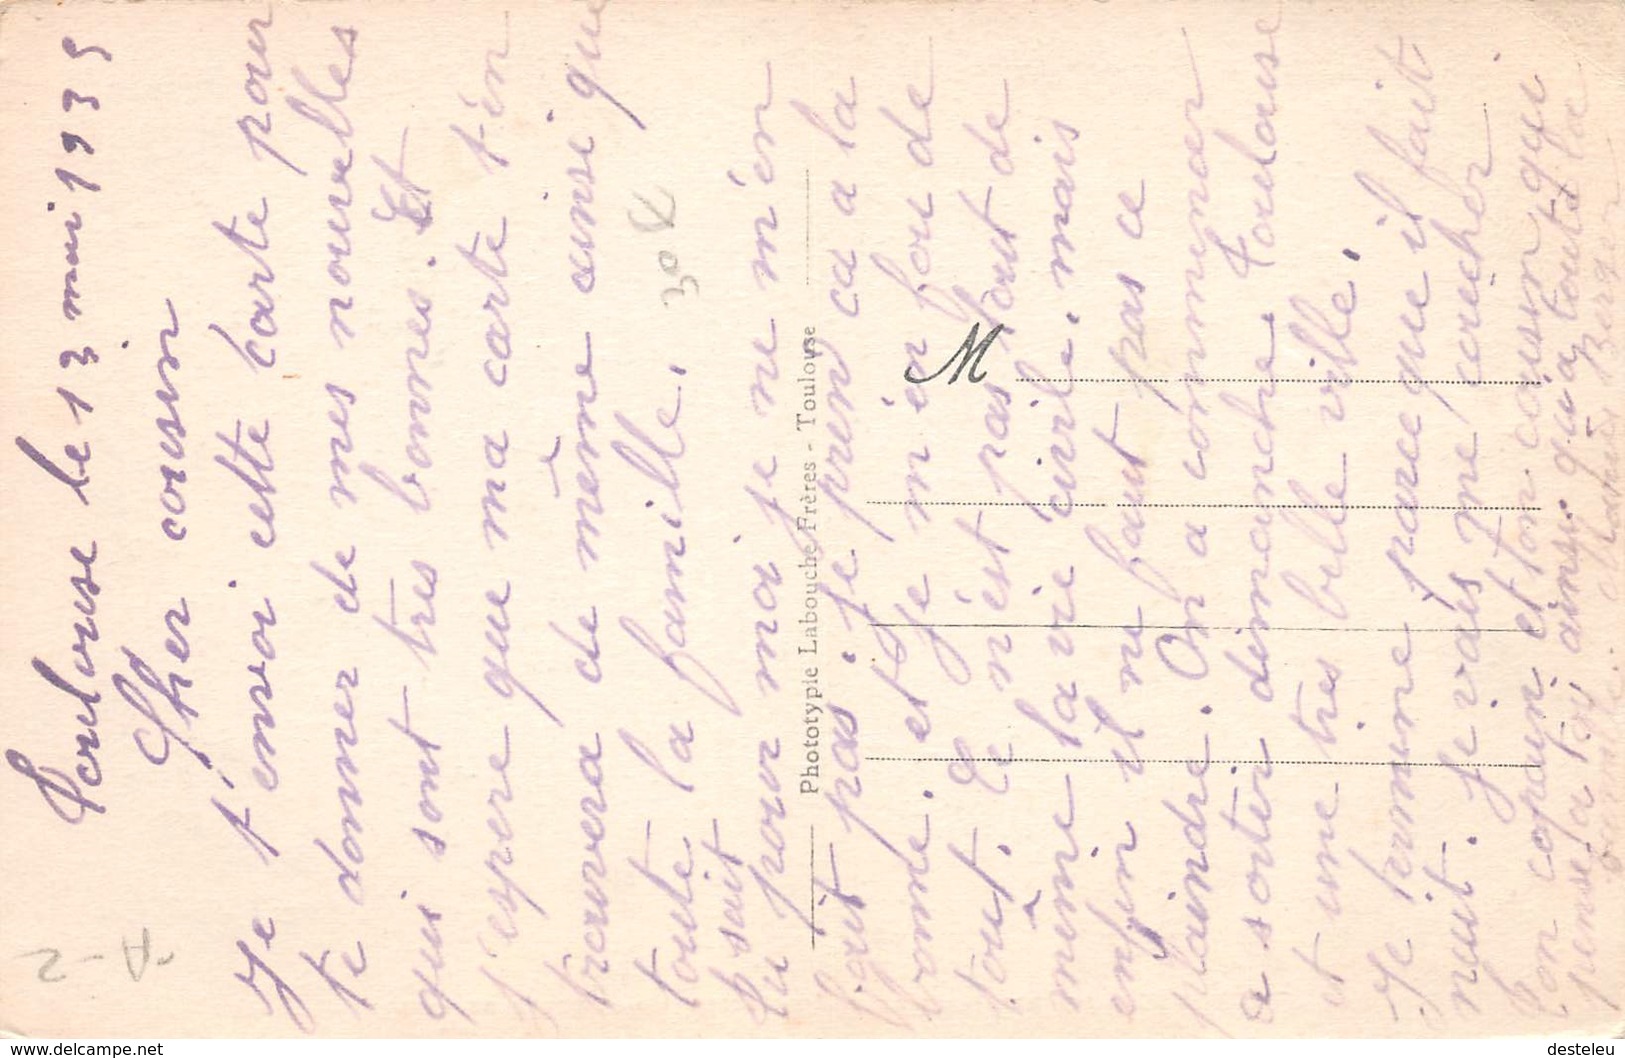 Toulouse le 13 mai 1935
Cher cousin
Je t'envoi cette carte pour
te donner de mes nouvelles
qui sont très bonnes. Et
j'espère que ma carte t'en
trouvera de même ainsi que
toute la famille.
Tu sait
pour moi je ne m'en
fait pas. je prend ca a la
bonne. et je m'en fou de
tout. Ce n'est pas tout de
même la vie civile. mais
enfin il ne faut pas ce
plaindre. On a commencer
a sortir dimanche. Toulouse
et une très belle ville.
Je termine parce que il fait
nuit. Je vais me coucher
Ton copain et ton cousin qui
pense a toi ainsi qu'a toute la
famille.
Phototypie Labouche Frères - Toulouse
M
30 F
A-2
www.delcampe.net
desteleu